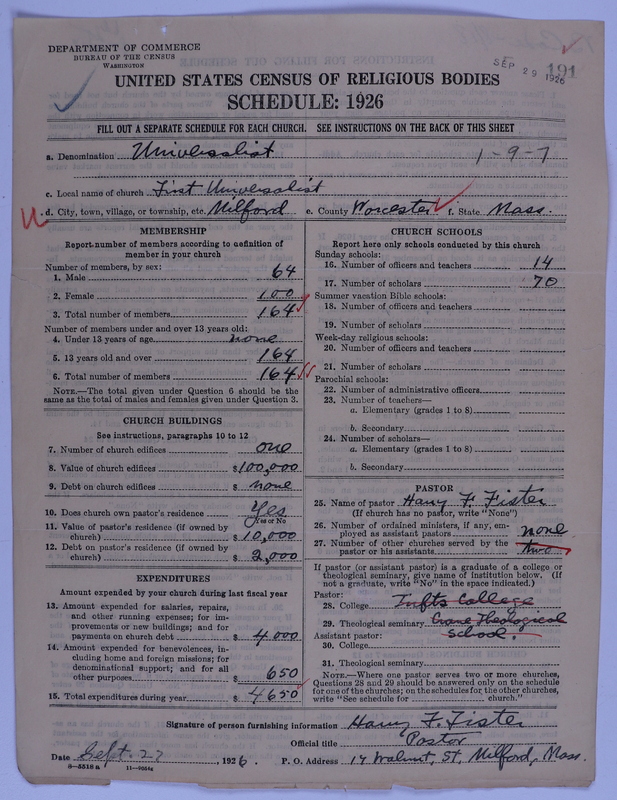 DEPARTMENT OF COMMERCE
BUREAU OF THE CENSUS
WASHINGTON
SEP 29 1926
191
UNITED STATES CENSUS OF RELIGIOUS BODIES
SCHEDULE: 1926
FILL OUT A SEPARATE SCHEDULE FOR EACH CHURCH. SEE INSTRUCTIONS ON THE BACK OF THIS SHEET
a. Denomination Universalist 1-9-7
c. Local name of church First Universalist
d. City, town, village, or township, etc. Milford e. County Worcester f. State Mass.
MEMBERSHIP
Report number of members according to definition of
member in your church
Number of members, by sex:
1. Male 64
2. Female 100
3. Total number of members 164
Number of members under and over 13 years old:
4. Under 13 years of age none
5. 13 years old and over 164
6. Total number of members 164
NOTE.—The total given under Question 6 should be the
same as the total of males and females given under Question 3.
CHURCH BUILDINGS
See instructions, paragraphs 10 to 12
7. Number of church edifices one
8. Value of church edifices $100,000
9. Debt on church edifices $ none
10. Does church own pastor's residence Yes
Yes or No
11. Value of pastor's residence (if owned by
church) $10,000
12. Debt on pastor's residence (if owned by
church) $2,000
EXPENDITURES
Amount expended by your church during last fiscal year
13. Amount expended for salaries, repairs,
and other running expenses; for im-
provements or new buildings; and for
payments on church debt $4000
14. Amount expended for benevolences, in-
cluding home and foreign missions; for
denominational support; and for all
other purposes 650
15. Total expenditures during year $4650
CHURCH SCHOOLS
Report here only schools conducted by this church
Sunday schools:
16. Number of officers and teachers 14
17. Number of scholars 70
Summer vacation Bible schools:
18. Number of officers and teachers
19. Number of scholars
Week-day religious schools:
20. Number of officers and teachers
21. Number of scholars
Parochial schools:
22. Number of administrative officers
23. Number of teachers—
a. Elementary (grades 1 to 8)
b. Secondary
24. Number of scholars—
a. Elementary (grades 1 to 8)
b. Secondary
PASTOR
25. Name of pastor Harry F. Fister
(If church has no pastor, write "None")
26. Number of ordained ministers, if any, em-
ployed as assistant pastors none
27. Number of other churches served by the
pastor or his assistants two
If pastor (or assistant pastor) is a graduate of a college or
theological seminary, give name of institution below. (If
not a graduate, write "No" in the space indicated.)
Pastor:
28. College Tufts College
29. Theological seminary Crane Theological
School.
Assistant pastor:
30. College
31. Theological seminary
NOTE.—Where one pastor serves two or more churches,
Questions 28 and 29 should be answered only on the schedule
for one of the churches; on the schedules for the other churches,
write "See schedule for church."
Signature of person furnishing information Harry F. Fister
Official title Pastor
Date Sept. 27, 1926. P. O. Address 17 Walnut, St, Milford, Mass.
8—5518 a 11—9054a